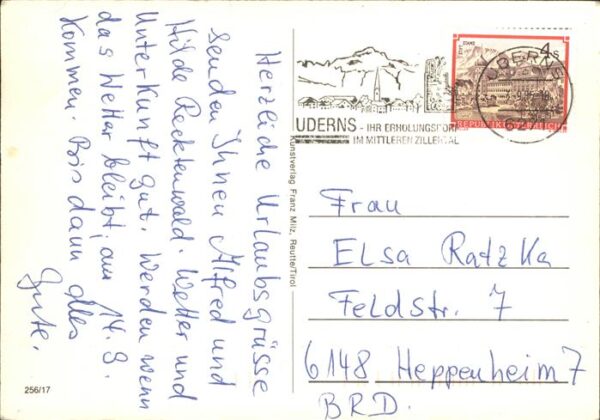 Herzliche Urlaubsgrüsse
senden Ihnen Alfred und
Hilde Recktenwald. Wetter und
Unterkunft gut. Werden wenn
das Wetter bleibt, am 14.9.
kommen. Bis dann alles
Gute.
256/17
Kunstverlag Franz Milz, Reutte/Tirol
UDERNS - IHR ERHOLUNGSDORF
IM MITTLEREN ZILLERTAL
STIFT STAMS
4 S
REPUBLIK ÖSTERREICH
UDERNS
Frau
Elsa Ratzka
Feldstr. 7
6148 Heppenheim 7
BRD.